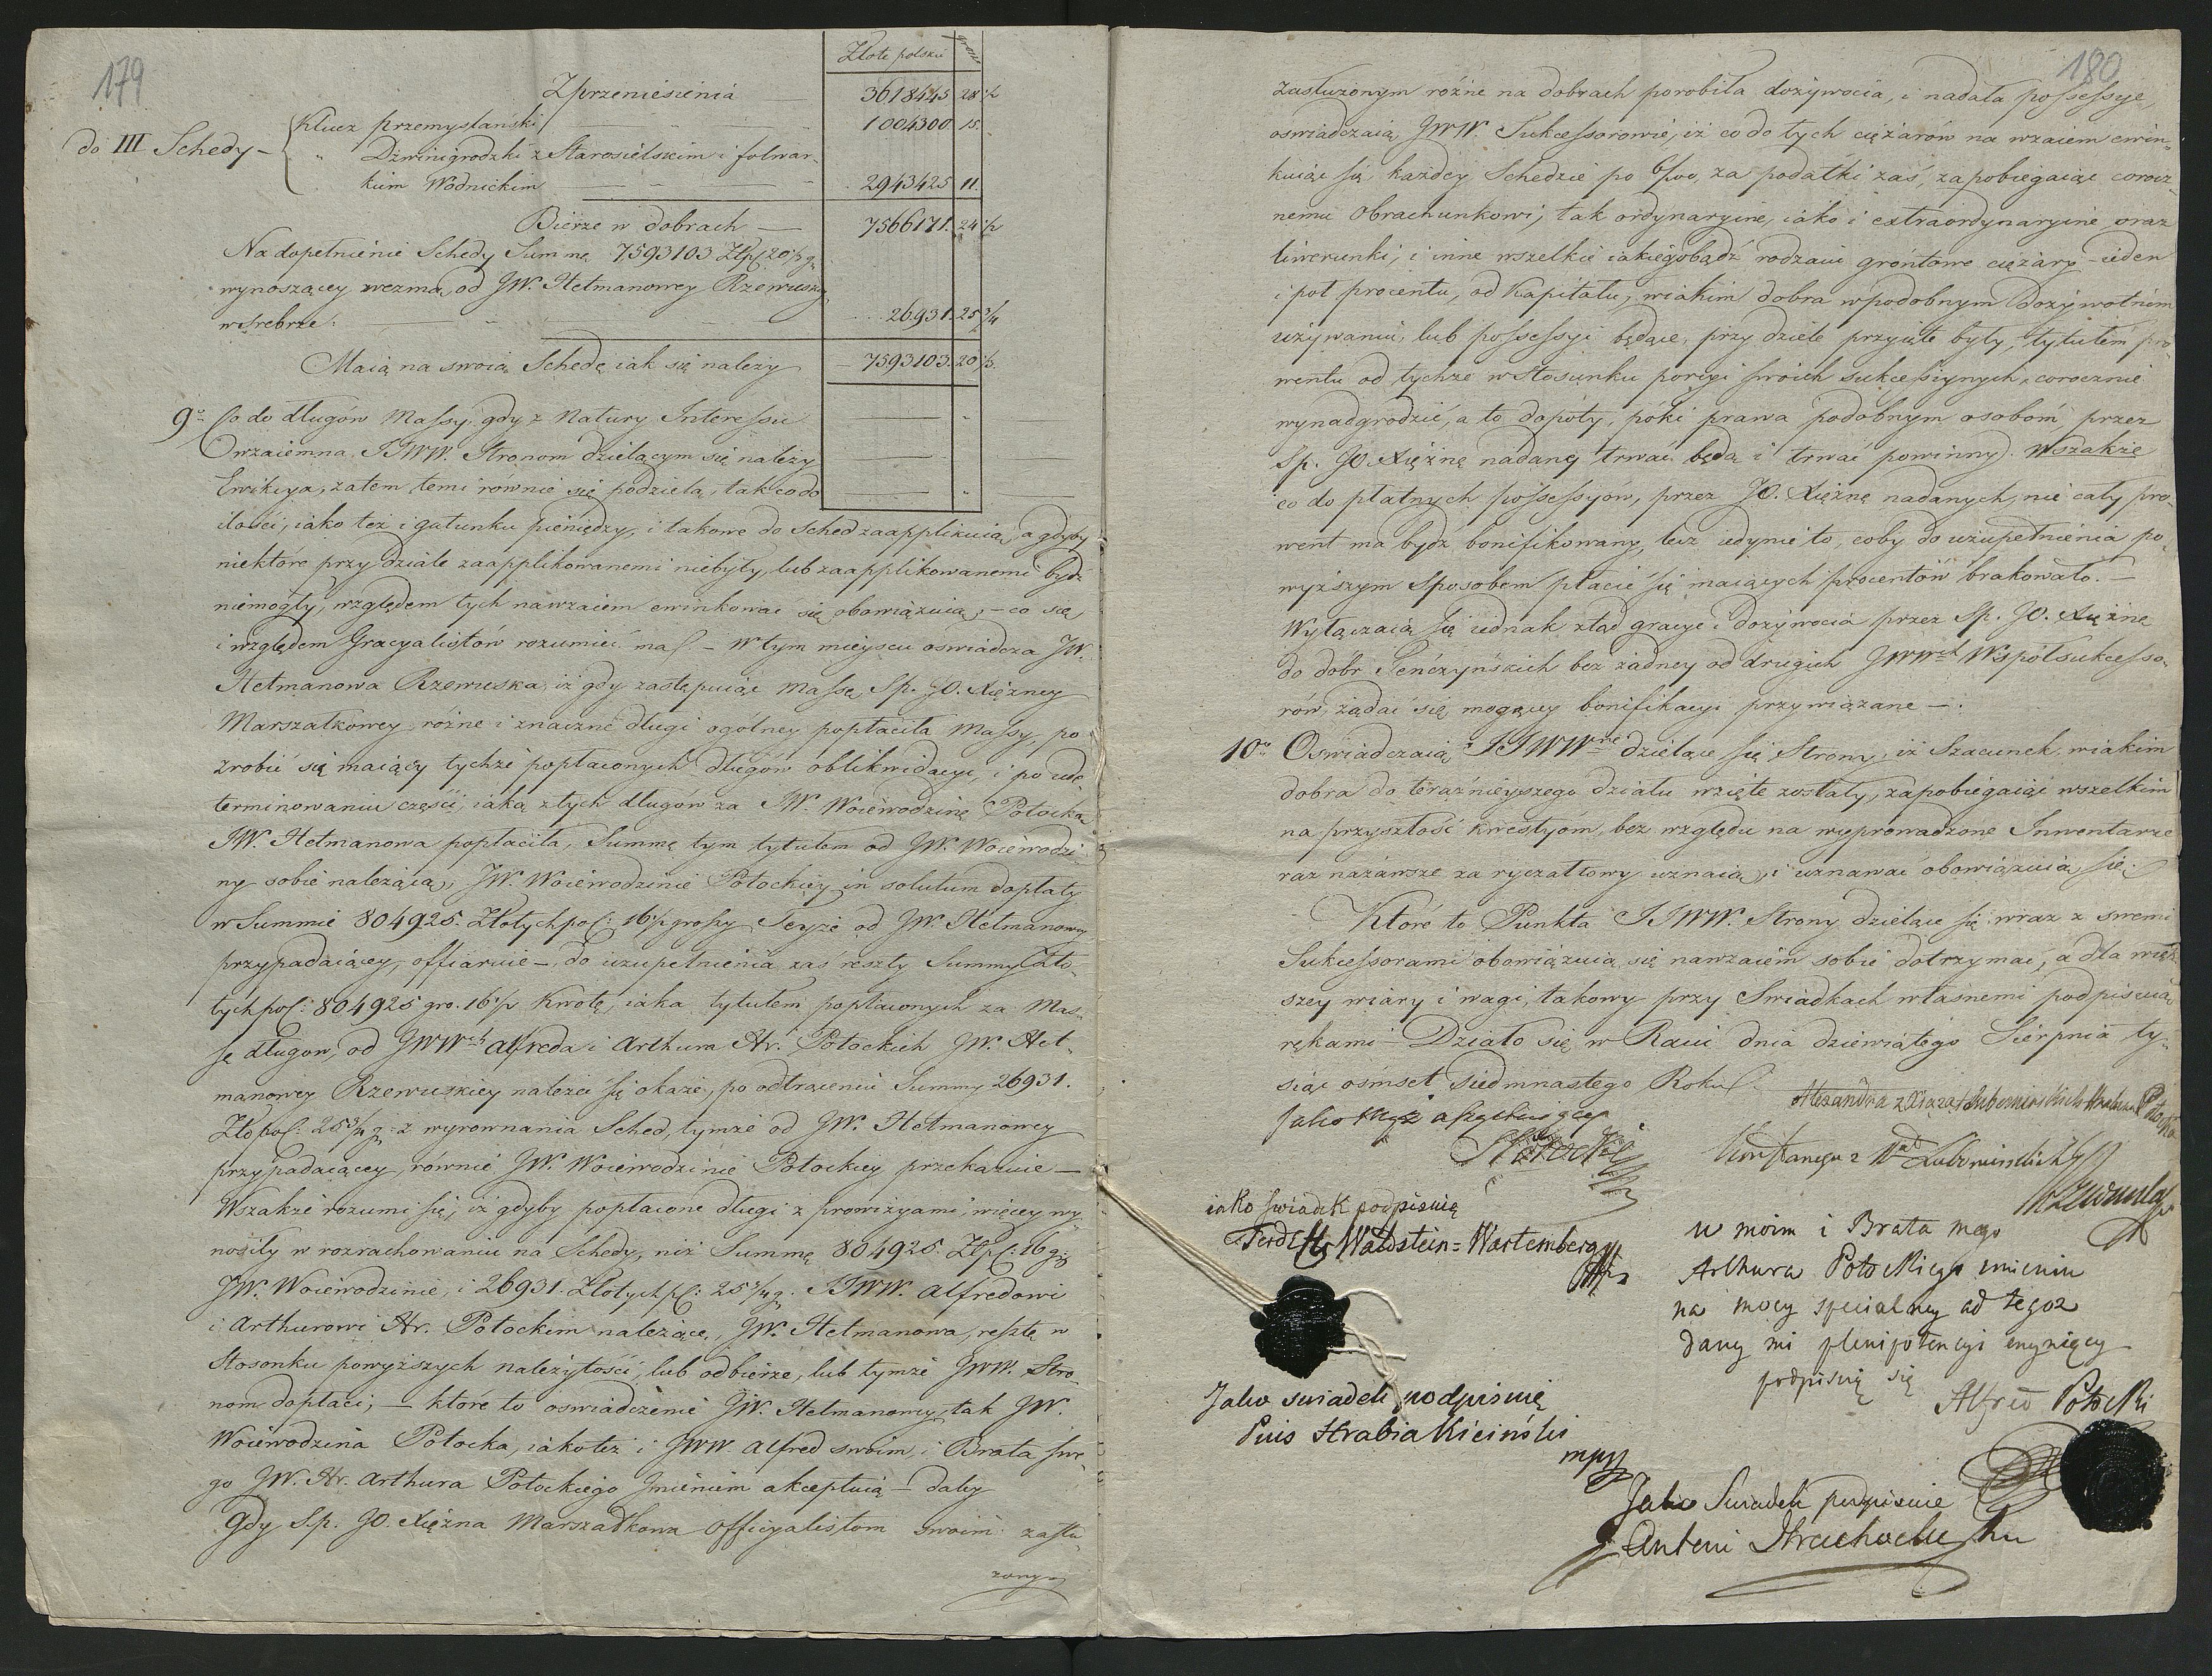 179
Złote polskie grosze
Zprzeniesienia — 3618445 28 1/2
do III Schedy — Klucz Przemyslański — 1004300. 15.
" Dźwinigrodzki z Starosielskim i folwar-
kiem Wodnickim — 2943425 11.
Bierze w dobrach — 7566171. 24 1/2
Na dopełnienie Schedy Summę 7593103 Złp: 20 1/2 g.
wynoszącey wezmą od JW. Hetmanowey Rzewuskiey
w srebrze: — 26931. 25 3/4
Maią na swoią Schedę iak się należy — 7593103. 20 1/3.
9o Co do długów Massy, gdy z Natury Interessu
Owzaiemna JJWW. Stronom dzielącym się należy
Ewikcya, zatem temi rownie się podzielą, tak co do
ilości, iako też i gatunku pieniędzy, i takowe do Sched zaapplikuią, a gdyby
niektóre przy dziale zaapplikowanemi niebyły, lub zaapplikowanemi bydź
niemogły, względem tych nawzaiem ewinkować się obowiązuią, — co się
i względem Gracyalistów rozumieć ma. — W tym mieyscu oswiadcza JW.
Hetmanowa Rzewuska, iż gdy zastępuiąc massę Sp. JO. Xiężney
Marszałkowey, rożne i znaczne długi ogólney popłaciła Massy, po
zrobić się maiącey tychże popłaconych długów oblikwidacyi, i po ude-
terminowaniu części, iaką z tych długów za JW. Woiewodzinę Potocką
JW. Hetmanowa popłaciła, Summę tym tytułem od JW. Woiewodzi-
ny sobie należącą, JW. Woiewodzinie Potockiey in solutum dopłaty
w Summie 804925. Złotych pol: 16 1/2 groszy Teyże od JW. Hetmanowey
przypadaiącey, offiaruie —, do uzupełnienia zaś reszty Summy Zło-
tych pol: 804925 gro. 16 1/2 Kwotę, iaka tytułem popłaconych za Mas-
sę długow, od JWWch Alfreda i Arthura Hr. Potockich JW. Het-
manowey Rzewuskiey należeć się okaże, po odtrąceniu Summy 26931.
Zło pol: 25 3/4 g. z wyrownania Sched, tymże od JW. Hetmanowey
przypadaiącey, równie JW. Woiewodzinie Potockiey przekazuie —
Wszakże rozumi się, iż gdyby popłacone długi z prowizyami więcey wy-
nosiły w rozrachowaniu na Schedy, niż Summę 804925 Złp: 16 g.
JW. Woiewodzinie, i 26931. Złotych p: 25 3/4 g. JJWW. Alfredowi
i Arthurowi Hr. Potockim należące, JW. Hetmanowa, resztę w
Stosonku powyższych należytości, lub odbierze, lub tymże JWW. Stro-
nom dopłaci; — które to oswiadczenie JW. Hetmanowey, tak JW.
Woiewodzina Potocka, iako też i JWW. Alfred swoim, i Brata swe-
go JW. Hr. Arthura Potockiego Jmieniem akceptuią — daley
Gdy Sp. JO. Xiężna Marszałkowa Officyalistom swoim zasłu-
żonym
180
zasłużonym różne na dobrach porobiła dożywocia, i nadała possessye,
oswiadczaią JWW. Sukcessorowie, iż co do tych ciężarów na wzaiem ewin-
kuiąc się każdey Schedzie po 6/00, za podatki zaś, zapobiegaiąc corocz-
nemu Obrachunkowi, tak ordynaryine, iako i extraordynaryine, oraz
liwerunki, i inne wszelkie iakiegobądź rodzaiu gróntowe ciężary — ieden
i poł procentu, od Kapitału, w iakim dobra w podobnym dożywotnim
używaniu, lub possessyi będące, przy dziele przyięte były, tytułem pro-
wentu od tychże w Stosunku porcyi swoich sukcessyinych, corocznie
wynadgrodzić, a to dopóty, póki prawa podobnym osobom, przez
Sp. JO. Xiężnę nadaney trwać będą i trwać powinny. Wszakże
co do płatnych possessyów, przez JO. Xiężnę nadanych, nie cały pro-
went ma bydź bonifikowany, lecz iedynie to, coby do uzupełnienia po-
wyższym Sposobem płacić się maiących procentów brakowało. —
Wyłączaią się iednak ztąd gracye i Dożywocia przez Sp. JO. Xiężnę
do dóbr Tenczyńskich bez żadney od drugich JWWch Współsukcesso-
rów, żądać się mogącey bonifikacyi przywiązane —.
10o Oswiadczaią JJWWne dzielące się Strony, iż Szacunek w iakim
dobra do teraźnieyszego działu wzięte zostały, zapobiegaiąc wszelkim
na przyszłość kwestyom, bez względu na wyprowadzone Inwentarze
raz nazawsze za ryczałtowy uznaią, i uznawać obowiązuią się.
Które to Punkta JJWW. Strony dzielące się wraz z swemi
Sukcessorami obowiązuią się nawzaiem sobie dotrzymać, a dla więk-
szey wiary i wagi, takowy przy Swiadkach własnemi podpisuią
rękami — Działo się w Raui dnia dziewiątego Sierpnia ty-
siąc ośmset siedmnastego Roku.
Alexandra z Xiążąt Lubomirskich Hrabina Potocka
Jako Mąż assystuiący
S Potocki
Konstancya z Xząt Lubomirskich
Rzewuska
iako swiadek podpisuię
Ferd. Hr Waldstein=Wartemberg
mp
w moim i Brata mego
Arthura Potockiego imieniu
na mocy specialney od tegoz
daney mi plenipotencyi czyniący
podpisuię się
Alfred Potocki
Jako swiadek podpisuię
Pius Hrabia Kiciński
mpp
Jako Swiadek podpisuie
Antoni